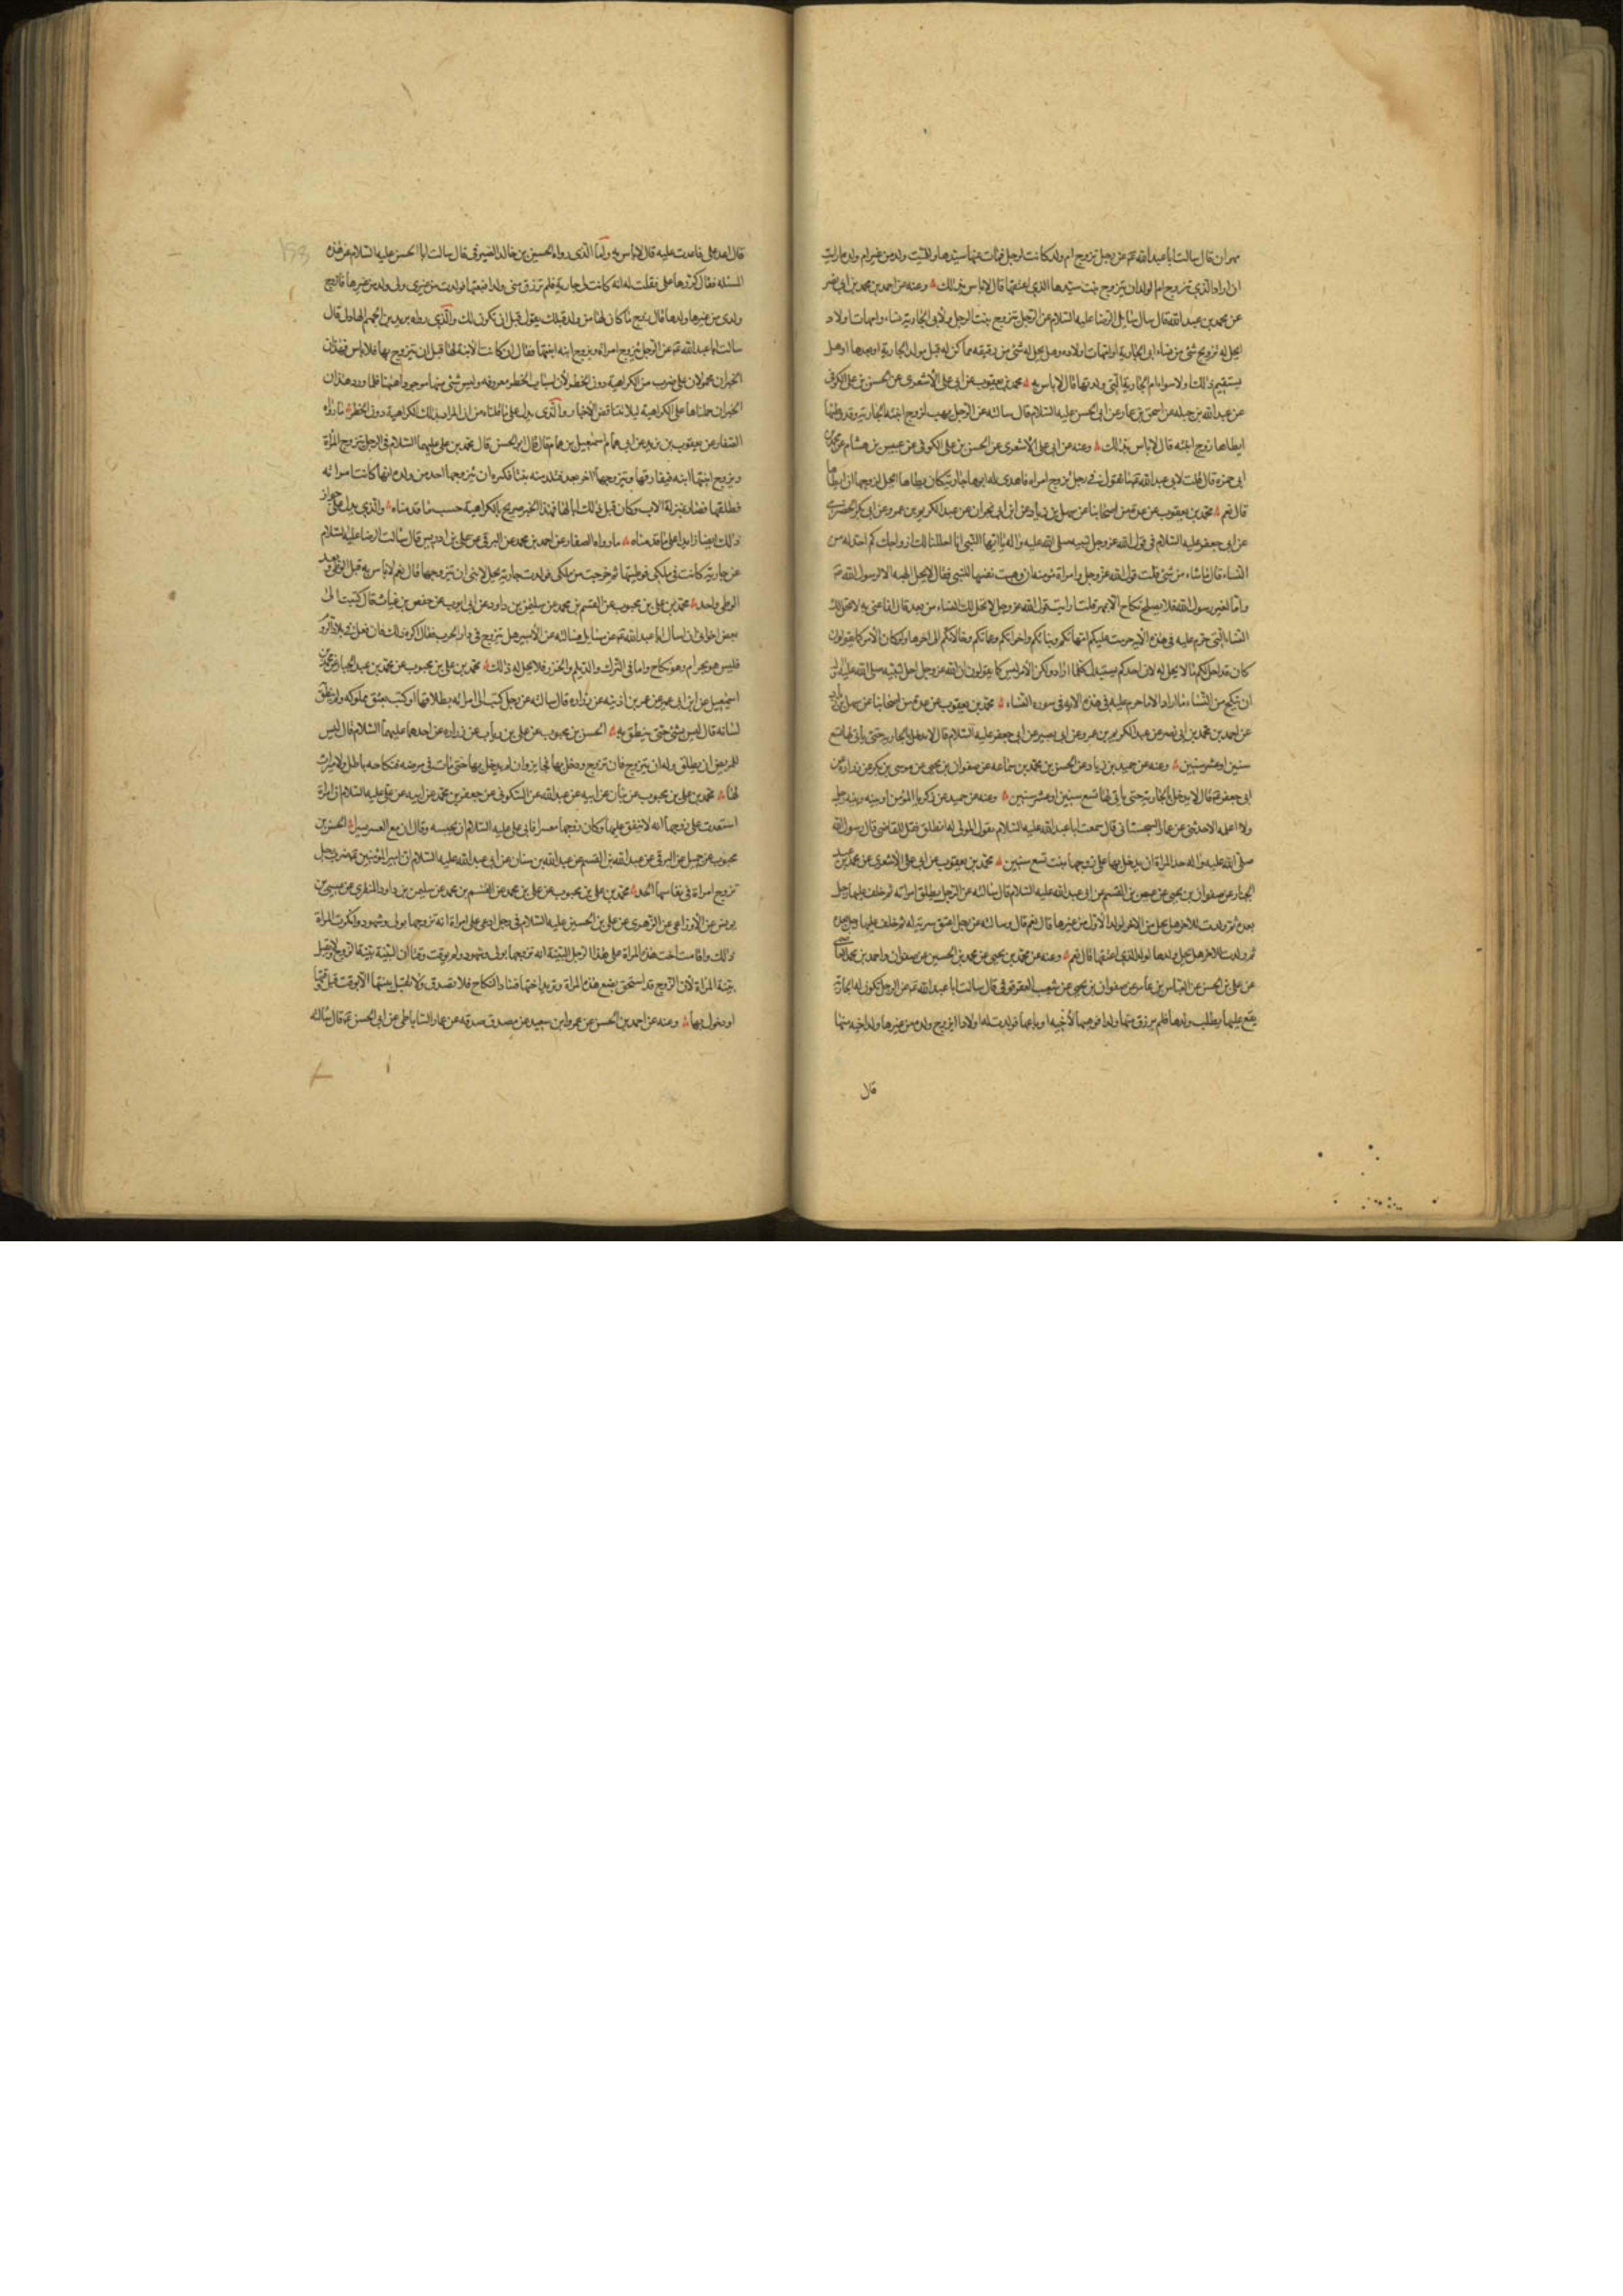 مهران قال سالت ابا عبد الله عم عن رجل تزوج ام ولد كانت لرجل فمات عنها سيدها وللميت ولد من غير ام ولده ارايت
ان اراد الذي تزوج ام الولد ان يتزوج بنت سيدها الذي اعتقها قال لا باس بذلك وعنه عن احمد بن محمد بن ابي نصر
عن محمد بن عبد الله قال سال سائل الرضا عليه السلام عن الرجل يتزوج بنت الرجل ولابي الجارية نساء وامهات اولاد
ايحل له تزويج شئ من نساء ابي الجارية وامهات اولاده وهل يحل له شئ من رقيقه مما كن له قبل مولد الجارية او بعدها او هل
يستقيم ذلك ولا سوا ام الجارية التي ولدتها قال لا باس به محمد بن يعقوب عن ابي علي الاشعري عن الحسن بن علي الكوفي
عن عبد الله بن جبله عن اسحق بن عمار عن ابي الحسن عليه السلام قال سالته عن الرجل يهب لزوج ابنته الجارية وقد وطئها
ايطاها زوج ابنته قال لا باس بذلك وعنه عن ابي علي الاشعري عن الحسن بن علي الكوفي عن عبيس بن هشام عن محمد بن
ابي حمزه قال قلت لابي عبد الله عم ما تقول في رجل تزوج امراه فاهدى له ابوها جارية كان يطاها ايحل لزوجها ان يطاها
قال نعم محمد بن يعقوب عن عدة من اصحابنا عن سهل بن زياد عن ابن ابي نجران عن عبد الكريم بن عمرو عن ابي بكر الحضرمي
عن ابي جعفر عليه السلام في قول الله عز وجل لنبيه صلى الله عليه واله يا ايها النبي انا احللنا لك ازواجك كم احل له من
النساء قال ما شاء من شئ قلت قول الله عز وجل وامراة مؤمنة ان وهبت نفسها للنبي فقال لا يحل الهبه الا لرسول الله ص
واما لغير رسول الله فلا يصلح نكاح الا بمهر قلت ارايت قول الله عز وجل لا يحل لك النساء من بعد قال انما عنى به لا يحل لك
النساء التي حرم عليه في هذه الاية حرمت عليكم امهاتكم وبناتكم واخواتكم وعماتكم وخالاتكم الى اخرها ولو كان الامر كما يقولون
كان قد احل لكم ما لا يحل له لان احدكم يستبدل كلما اراد ولكن الامر ليس كما يقولون ان الله عز وجل احل لنبيه صلى الله عليه واله
ان ينكح من النساء ما اراد الا ما حرم عليه في هذه الاية في سورة النساء محمد بن يعقوب عن عدة من اصحابنا عن سهل بن زياد
عن احمد بن محمد بن ابي نصر عن عبد الكريم بن عمرو عن ابي بصير عن ابي جعفر عليه السلام قال لا يدخل بالجارية حتى ياتي لها تسع
سنين او عشر سنين وعنه عن حميد بن زياد عن الحسن بن محمد بن سماعه عن صفوان بن يحيى عن موسى بن بكر عن زراره عن
ابي جعفر ع قال لا يدخل بالجارية حتى ياتي لها تسع سنين او عشر سنين وعنه عن حميد عن زكريا المؤمن او بينه وبينه رجل
ولا اعلمه الا حدثني عن عمار السجستاني قال سمعت ابا عبد الله عليه السلام يقول لمولى له انطلق فقل للقاضي قال رسول الله
صلى الله عليه واله حد المراة ان يدخل بها على زوجها بنت تسع سنين محمد بن يعقوب عن ابي علي الاشعري عن محمد بن عبد
الجبار عن صفوان بن يحيى عن عيص بن القسم عن ابي عبد الله عليه السلام قال سالته عن الرجل يطلق امراته ثم خلف عليها رجل
بعده ثم ولدت للاخر هل يحل من الاخر لولد الاول من غيرها قال نعم قال وسالته عن رجل اعتق سرية له ثم خلف عليها رجل بعده
ثم ولدت للاخر هل يحل ولدها لولد الذي اعتقها قال نعم وعنه عن محمد بن يحيى عن محمد بن الحسين عن صفوان واحمد بن محمد العاصمي
عن علي بن الحسن عن العباس بن عامر عن صفوان بن يحيى عن شعيب العقرقوفي قال سالت ابا عبد الله عم عن الرجل تكون له الجارية
يقع عليها يطلب ولدها فلم يرزق منها ولدا فوهبها لاخيه او باعها فولدت له اولادا ايزوج ولده من غيرها ولد اخيه منها
قال
قال اعد علي فاعدت عليه قال لا باس به واما الذي رواه الحسين بن خالد الصيرفي قال سالت ابا الحسن عليه السلام عن هذه
المسئله فقال كررها علي فقلت له انه كانت لي جارية فلم ترزق مني ولدا فبعتها فولدت من غيري ولي ولد من غيرها فازوج
ولدي من غيرها ولدها قال تزوج ما كان لها من ولد قبلك يقول قبل ان تكون لك والذي رواه زيد بن الجهم الهلالي قال
سالت ابا عبد الله عم عن الرجل يتزوج امراة ويزوج ابنه ابنتها فقال ان كانت الابنة لها قبل ان يتزوج بها فلا باس فهذان
الخبران محمولان على ضرب من الكراهية دون الحظر لان اسباب الحظر معروفه وليس شئ منها موجودا هيهنا فلما ورد هذان
الخبران حملناها على الكراهية ليلا تتناقض الاخبار والذي يدل على ما قلناه من ان المراد بذلك الكراهية دون الحظر ما رواه
الصفار عن يعقوب بن يزيد عن ابي همام اسمعيل بن همام قال قال ابو الحسن قال محمد بن علي عليهما السلام في الرجل يتزوج المراة
ويزوج ابنتها ابنه فيفارقها ويتزوجها اخر بعد فتلد منه بنتا فكره ان يتزوجها احد من ولده لانها كانت امراته
فطلقها فصار بمنزلة الاب وكان قبل ذلك ابا لها فهذا الخبر صريح بالكراهية حسب ما قدمناه والذي يدل على جواز
ذلك ايضا زايدا على ما قدمناه ما رواه الصفار عن احمد بن محمد عن البرقي عن علي بن ادريس قال سالت الرضا عليه السلام
عن جارية كانت في ملكي فوطئتها ثم خرجت من ملكي فولدت جارية يحل لابني ان يتزوجها قال نعم لا باس به قبل الوطي وبعد
الوطي واحد محمد بن علي بن محبوب عن القسم بن محمد عن سليمن بن داود عن ابي ايوب عن حفص بن غياث قال كتبت الى
بعض اخواني ان اسال ابا عبد الله عم عن مسايل فسالته عن الاسير هل يتزوج في دار الحرب فقال اكره ذلك فان فعل في بلاد الروم
فليس هو بحرام وهو نكاح واما في الترك والديلم والخزر فلا يحل له ذلك محمد بن علي بن محبوب عن محمد بن عبد الجبار عن محمد بن
اسمعيل عن ابن ابي عمير عن عمر بن اذينه عن زراره قال سالته عن رجل كتب الى امراته بطلاقها او كتب بعتق مملوكه ولم ينطق
لسانه قال ليس بشئ حتى ينطق به الحسن بن محبوب عن علي بن رياب عن زراره عن احدهما عليهما السلام قال ليس
للمريض ان يطلق وله ان يتزوج فان تزوج ودخل بها فجايز وان لم يدخل بها حتى مات في مرضه فنكاحه باطل ولا ميراث
لها محمد بن علي بن محبوب عن بنان عن ابيه عن عبد الله عن السكوني عن جعفر بن محمد عن ابيه عن علي عليه السلام ان امراة
استعدت على زوجها انه لا ينفق عليها وكان زوجها معسرا فابى علي عليه السلام ان يحبسه وقال ان مع العسر يسرا الحسن بن
محبوب عن جميل عن البرقي عن عبد الله بن القسم عن عبد الله بن سنان عن ابي عبد الله عليه السلام ان امير المؤمنين ع ضرب رجل
تزوج امراة في نفاسها الحد محمد بن علي بن محبوب عن علي بن محمد عن القسم بن محمد عن سليمن بن داود المنقري عن عيسى بن
يونس عن الاوزاعي عن الزهري عن علي بن الحسين عليه السلام في رجل ادعى على امراة انه تزوجها بولي وشهود وانكرت المراة
ذلك واقامت اخت هذه المراة على هذا الرجل البينة انه تزوجها بولي وشهود ولم يوقت وقتا ان البينة بينة الزوج ولا يقبل
بينة المراة لان الزوج قد استحق بضع هذه المراة وتريد اختها فساد النكاح فلا تصدق ولا تقبل بينتها الا بوقت قبل وقتها
او دخول بها وعنه عن احمد بن الحسن عن عمرو بن سعيد عن مصدق بن صدقه عن عمار الساباطي عن ابي الحسن ع قال سالته